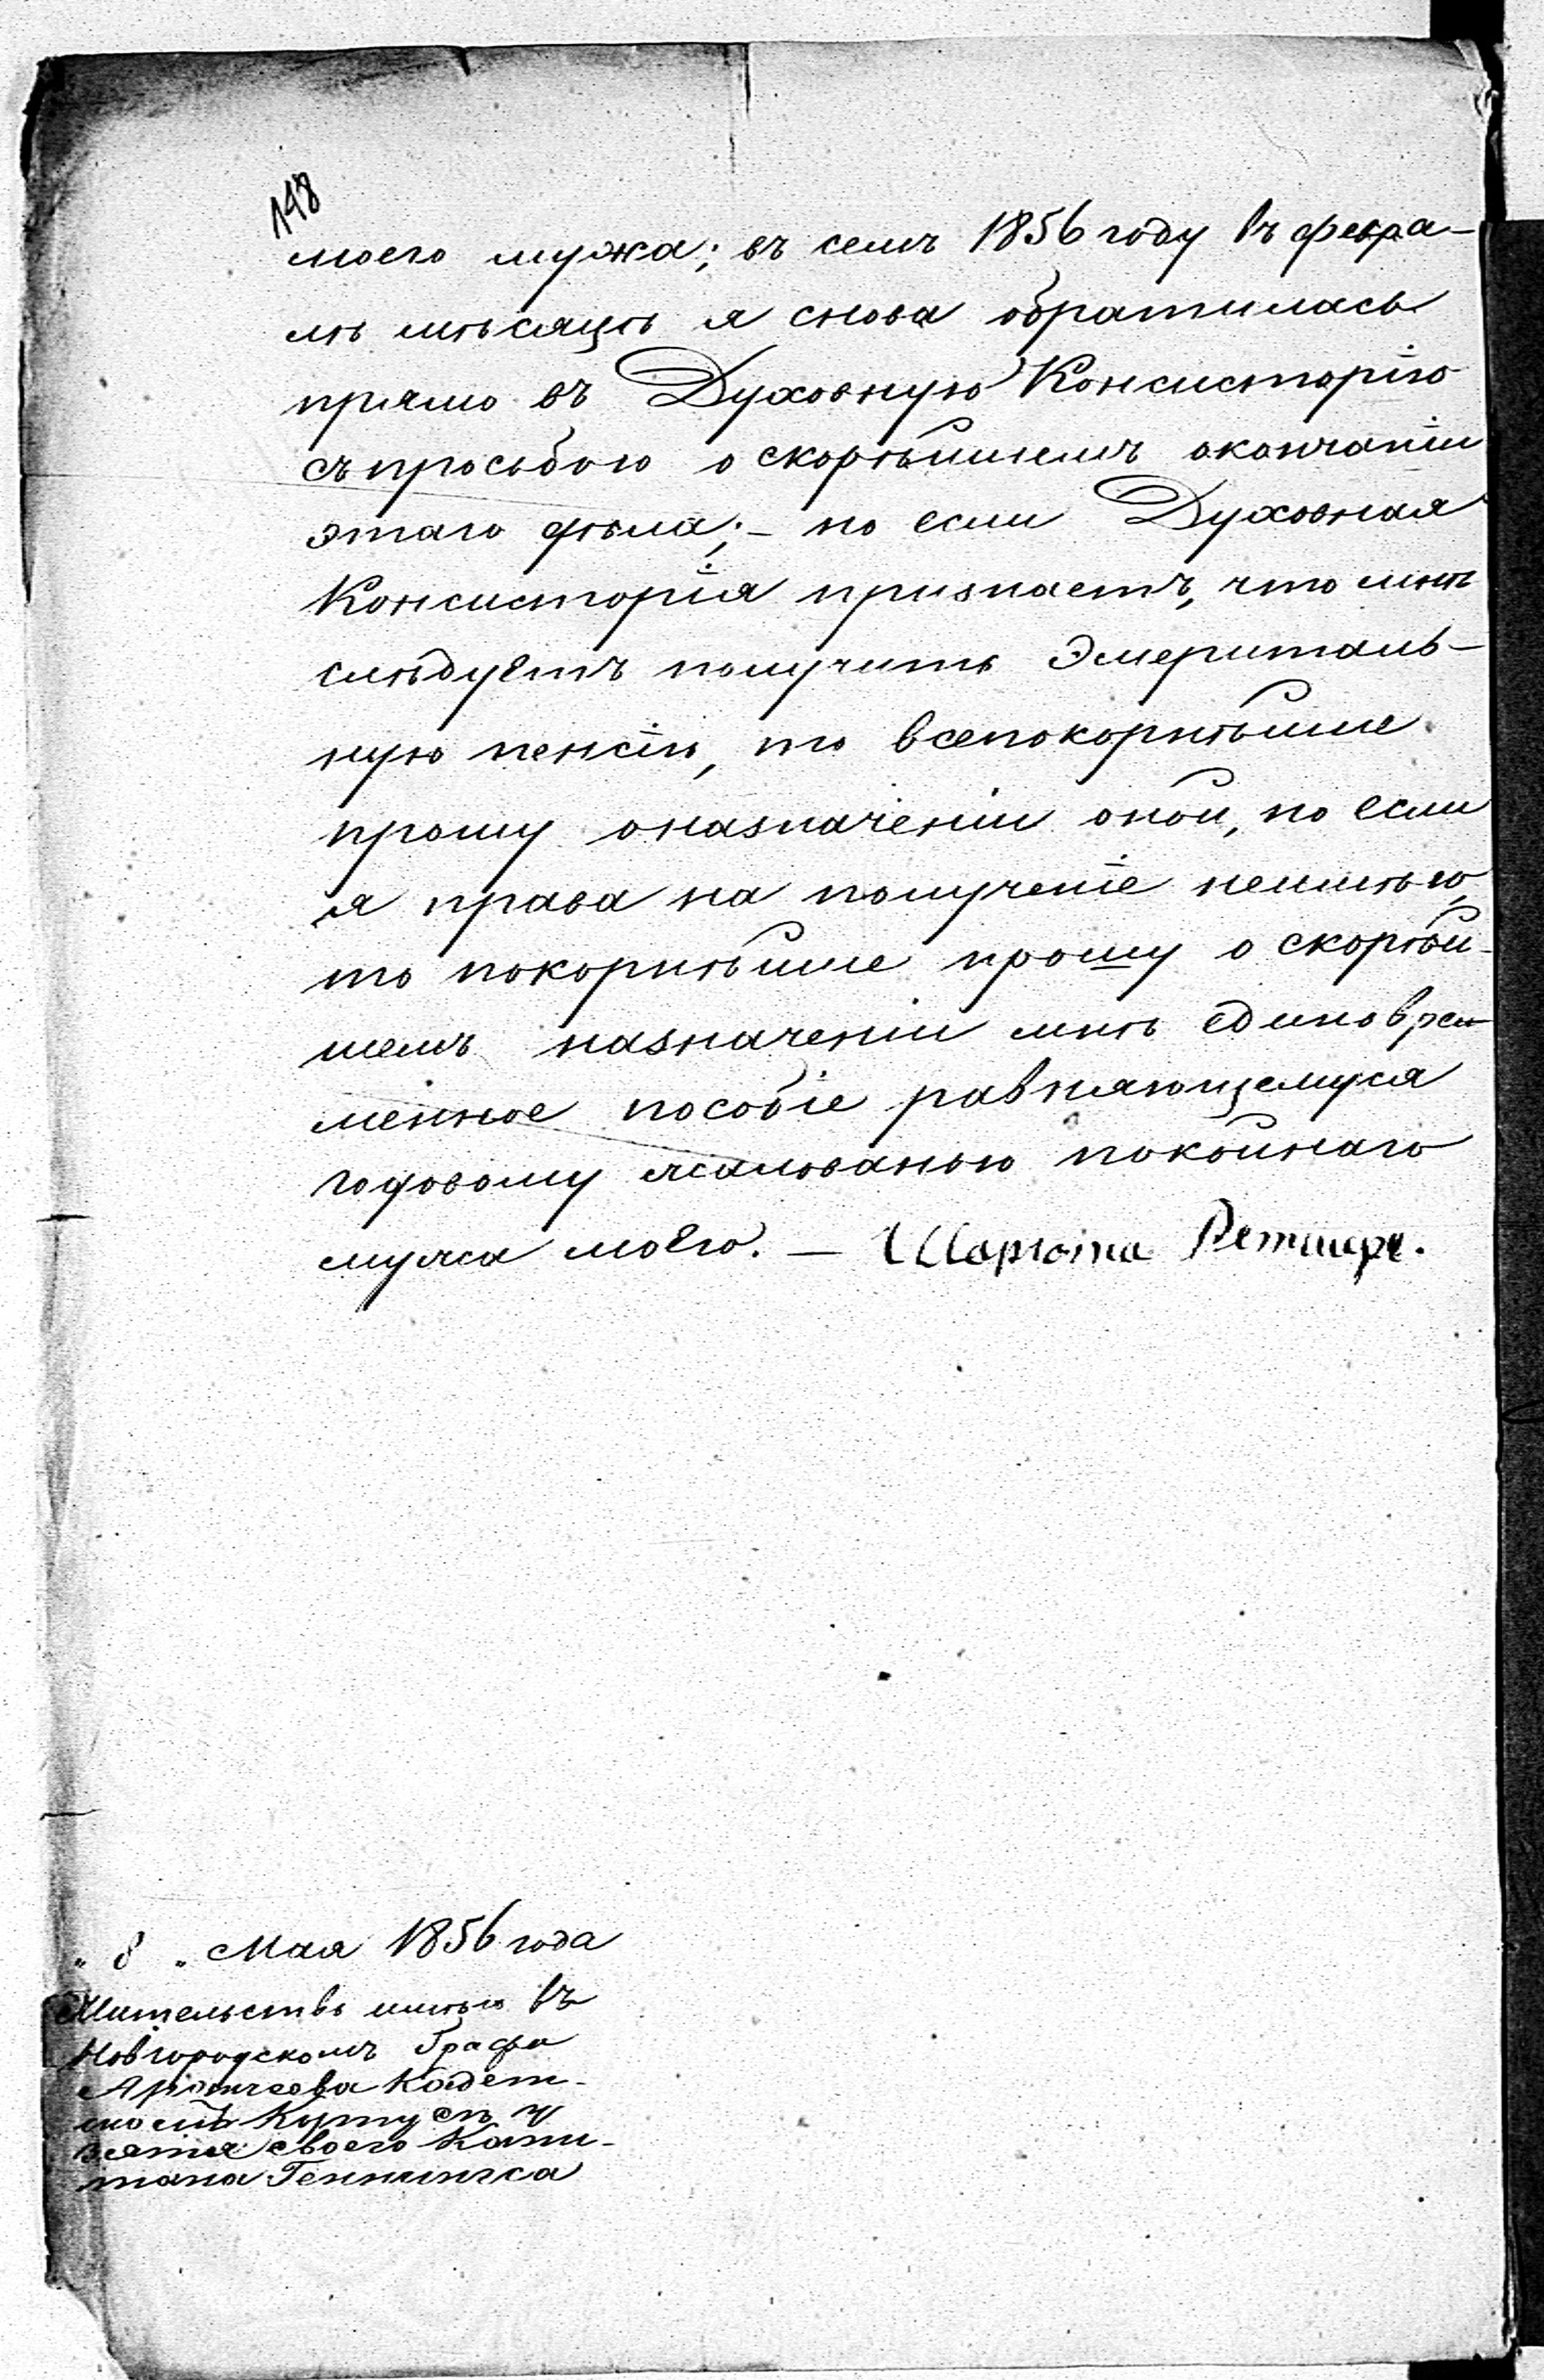 148
моего мужа; въ семъ 1856 году въ февра-
лѣ мѣсяцѣ я снова обратилась
прямо въ Духовную Консисторію
съ просьбою о скорѣйшемъ окончаніи
этаго дѣла; – но если Духовная
Консисторія признаетъ, что мнѣ
слѣдуетъ получить Эмериталь-
ную пенсію, то всепокорнѣйше
прошу о назначеніи оной, но если
я права на полученіе неимѣю,
то покорнѣйше прошу о скорѣй-
шемъ назначеніи мнѣ единовре-
менное пособіе равняющемуся
годовому жалованью покойнаго
мужа моего. — Шарлота Ретшеръ.
"8" Мая 1856 года
Жительство имѣю въ
Новгородскомъ Графа
Аракчеева Кадет-
скомъ Корпусѣ у
зятя своего Капи-
тана Геннингса